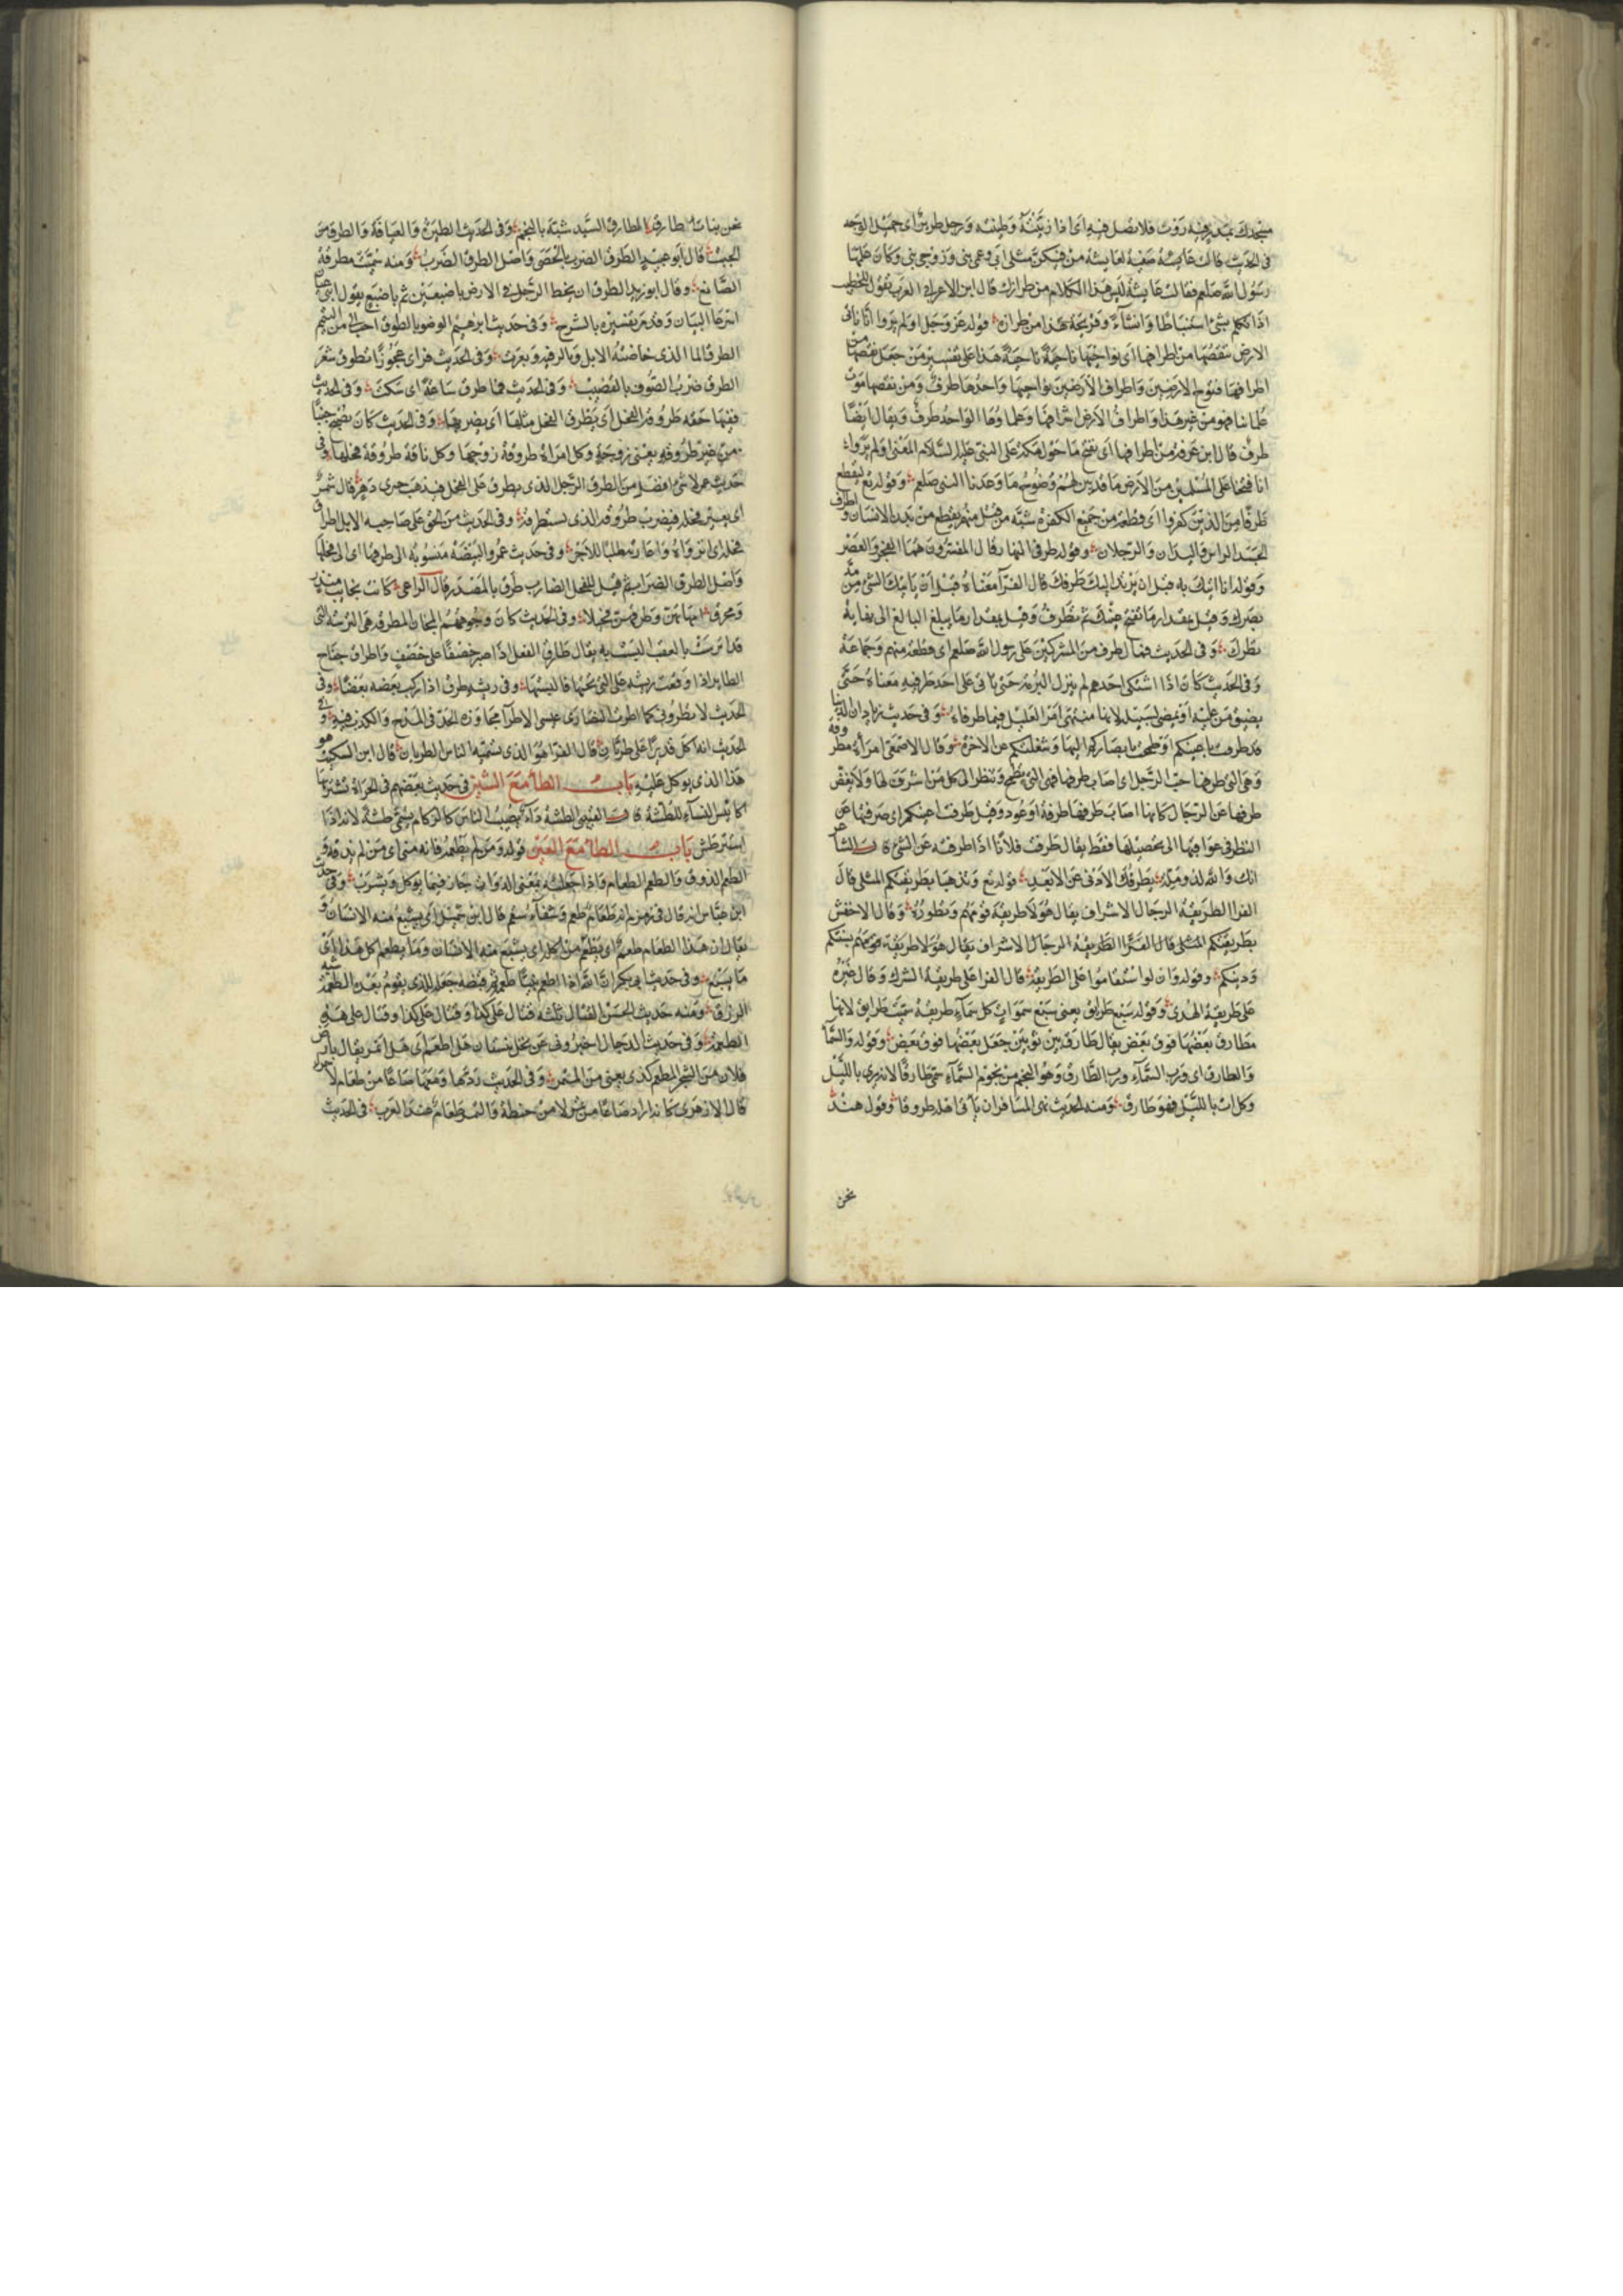 في الحديث قالت صفية لعايشة من فيكن مثلي ابي نبي وعمي نبي وزوجي نبي وكان علمها
رسول الله صلعم فقالت عايشة ليس هذا الكلام من طرازك قال ابن الاعرابي العرب تقول للخطيب
اذا تكلم بشئ استنباطا وقريحة هذا من طرازه وقوله عز وجل اولم يروا انا ناتي
الارض ننقصها من اطرافها اي نواحيها ناحية ناحية هذا على تفسير من جعل نقصها من
اطرافها فتوح الارضين واطراف الارضين نواحيها واحدها طرف ومن نقصها موت
علمائها فهو من غير هذا واطراف الارض اشرافها وعلماوها الواحد طرف ويقال ايضا
طرف قال ابن عرفة من اطرافها اي نفتح ما حول مكة على النبي عليه السلام المعنى اولم يروا
انا فتحنا على المسلمين من الارض ما قد تبين لهم وضوح ما وعدنا النبي صلعم وقوله تع ليقطع
طرفا من الذين كفروا اي قطعة من جميع الكفرة شبه من قتل منهم بقطع من بدن الانسان واطراف
الجسد الراس واليدان والرجلان وقوله طرفي النهار قال المفسرون هما الفجر والعصر
وقوله انا اتيك به قبل ان يرتد اليك طرفك قال الفرا معناه قبل ان ياتيك الشئ من مد
بصرك وقيل بمقدار ما تفتح عينك ثم تطرف وقيل بمقدار ما يبلغ البالغ الى نهاية
نظرك وفي الحديث فمال طرف من المشركين على رسول الله صلعم اي قطعة منهم وجماعة
وفي الحديث كان اذا اشتكى احدهم لم ينزل البرمة حتى ياتي على احد طرفيه معناه حتى
يفيق من علته او يمضي لسبيله لانهما منتهى امر العليل فهما طرفاه وفي حديث زياد ان الدنيا
قد طرفت باعينكم اي طمحت بابصاركم اليها وشغلتكم عن الاخرة وقال الاصمعي امراة مطروفة
وهي التي طرفها حب الرجل اي اصاب طرفها فهي التي تطمح وتنظر الى كل من اشرف لها ولا تغض
طرفها عن الرجال كانما اصاب طرفها طرفة او عود وقيل طرفت اعينكم اي صرفها عن
النظر في عواقبها الى تحصيلها فقط يقال طرفت فلانا اذا طرفته عن الشئ قال الشاعر
انك والله لذو ملة يطرفك الادنى عن الابعد قوله تع ويذهبا بطريقتكم المثلى قال
الفرا الطريقة الرجال الاشراف يقال هولاء طريقة قومهم ونظورة وقال الاخفش
بطريقتكم المثلى قال الفرا الطريقة الرجال الاشراف يقال هولا طريقة قومهم بسنتكم
ودينكم وقوله وان لو استقاموا على الطريقة قال الفرا على طريقة الشرك وقال غيره
على طريقة الهدى وقوله سبع طرائق يعني سبع سموات كل سماء طريقة سميت طرائق لانها
مطارق بعضها فوق بعض يقال طارق بين ثوبين جعل بعضها فوق بعض وقوله والسماء
والطارق اي ورب السماء ورب الطارق وهو النجم من نجوم السماء سمي طارقا لانه يرى بالليل
وكل ات بالليل فهو طارق ومنه الحديث نهى المسافر ان ياتي اهله طروقا وقول هند
نحن
نحن بنات طارق الطارق السيد شبه بالنجم وفي الحديث الطيرة والعيافة والطرق من
الجبت قال ابو عبيد الطرق الضرب بالحصى واصل الطرق الضرب ومنه سميت مطرقة
الصانع وقال ابو زيد الطرق ان يخط الرجل في الارض باصبعين ثم باصبع يقول ابني عيان
اسرعا البيان وقد مر تفسيره بالشرح وفي حديث ابرهيم الوضو بالطرق احب الي من التيمم
الطرق الما الذي خاضته الابل وبالت فيه وبعرت وفي الحديث فراى عجوزا تطرق شعر
الطرق ضرب الصوف بالقضيب وفي الحديث فما طرق ساعة اي سكت وفي الحديث
فيها حقة طروقة الفحل اي يطرق الفحل مثلها اي يضربها وفي الحديث كان يصبح جنبا
من غير طروقة يعني زوجة وكل امراة طروقة زوجها وكل ناقة طروقة فحلها وفي
حديث عمر لا شئ افضل من الطرق الرجل الذي يطرق على الفحل فيذهب حيري دهر قال شمر
اي يعير فحله فيضرب طروقة الذي يستطرقه وفي الحديث من الحق على صاحب الابل اطراق
فحلها اي انزواه واعارته مطلبا للاجر وفي حديث عمرو البيضة منسوبة الى طرقها اي الى فحلها
واصل الطرق الضراب ثم قيل للفحل الضارب طرق بالمصدر قال الراعي كانت نجايب منذر
ومحرق اماتهن وطرقهن فحيلا وفي الحديث كان وجوههم المجان المطرقة هي الترسة التي
الطاير اذا وقعت ريشه على التي تحتها فالبستها وفي ريشه طرق اذا ركب بعضه بعضا وفي
الحديث لا تطروني كما اطرت النصارى عيسى الاطراء مجاوزة الحد في المدح والكذب فيه وفي
الحديث انه اكل قديدا على طريان قال الفرا هو الذي تسميه الناس الطريان قال ابن السكيت هو
هذا الذي يوكل عليه باب الطا مع الشين في حديث بعضهم في الحزاة تشتريها
اكايس النساء للطشة قال القتيبي الطشة داء يصيب الناس كالزكام سمي طشة لانه اذا
استنثر طش باب الطا مع العين قوله ومن لم يطعمه فانه مني اي من لم يذقه و
الطعم الذوق والطعم الطعام واذا جعلته بمعنى الذواق جاز فيما يوكل ويشرب وفي حديث
ابن عباس انه قال في زمزم انه طعام طعم وشفاء سقم قال ابن شميل اي يشبع منه الانسان و
يقال ان هذا الطعام طعم اي يطعم من اكله اي يشبع منه الانسان وما يطعم اكل هذا اي
ما يشبع وفي حديث ابي بكر ان الله اذا اطعم نبيا طعمة ثم قبضه جعلها للذي يقوم بعده الطعمة شبه
الرزق ومنه حديث الحسن القتال ثلثة قتال على كذا وقتال على كذا وقتال على هذه
الطعمة وفي حديث الدجال اخبروني عن نخل بيسان هل اطعم اي هل اثمر يقال بارض
فلان من الشجر المطعم كذى يعني من المثمر وفي الحديث ردها ومعها صاعا من طعام لا
قال الازهري كانه اراد صاعا من تمر لا من حنطة والتمر طعام عند العرب في الحديث